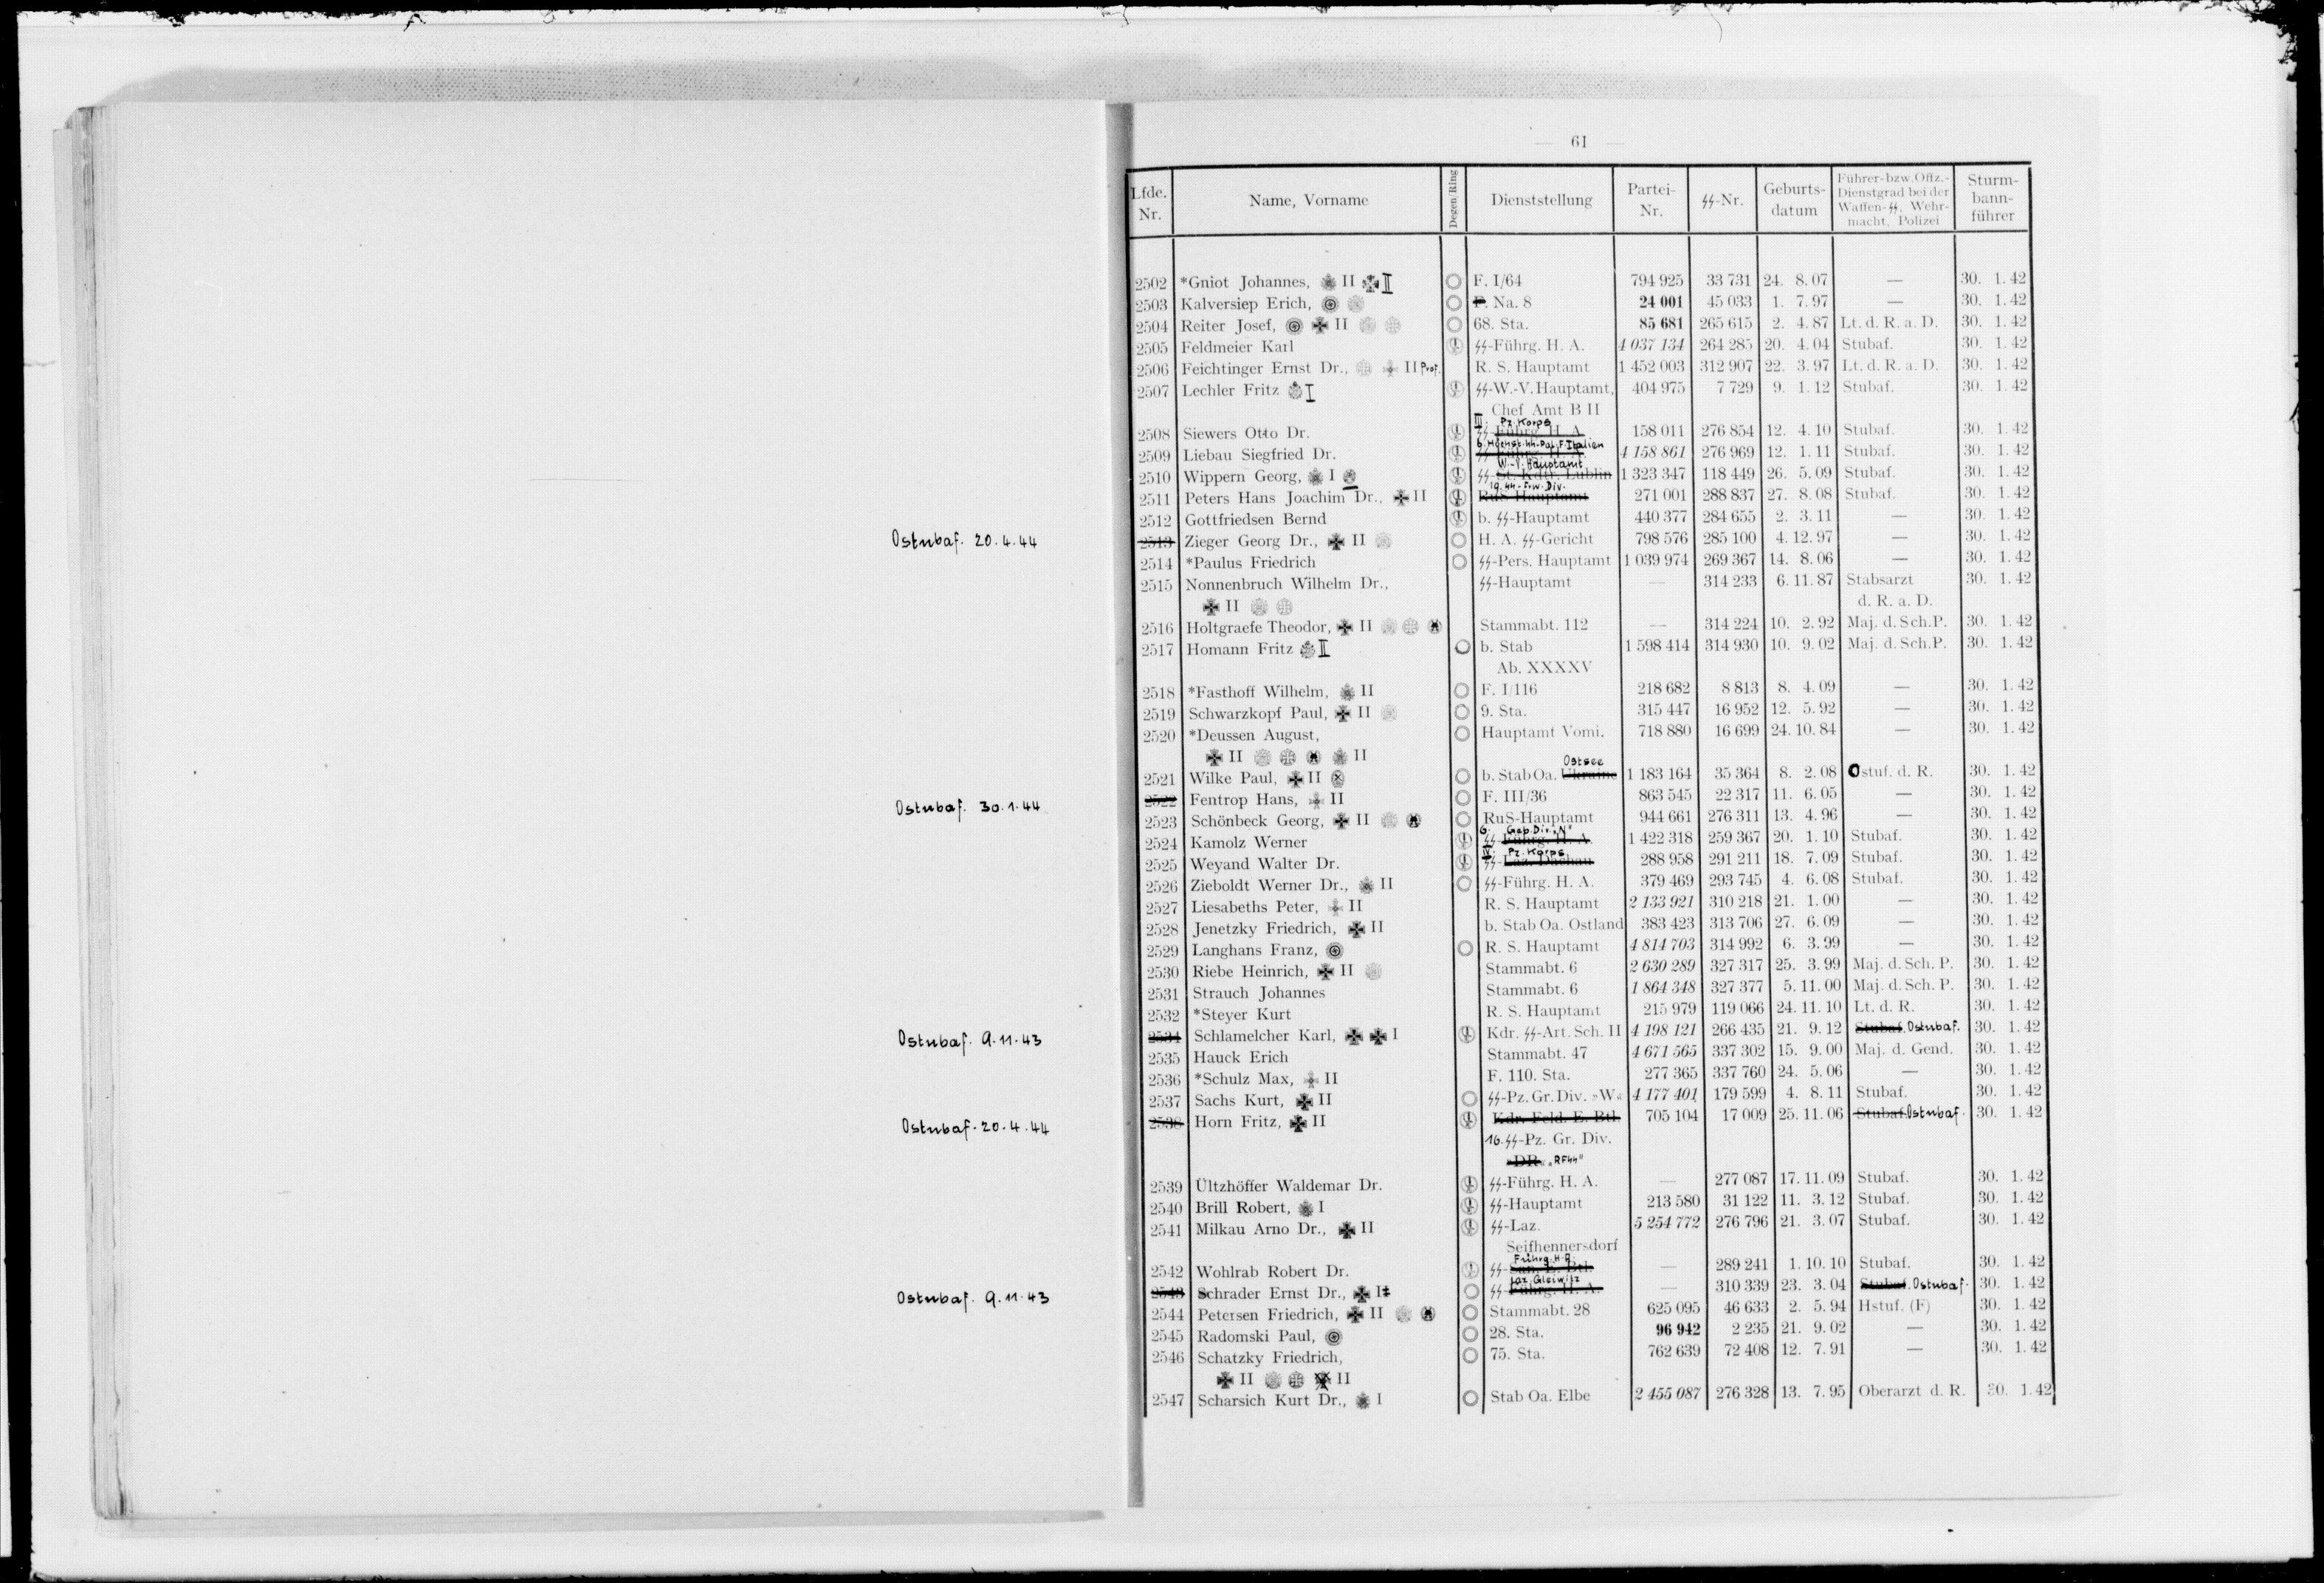 Ostubaf. 20.4.44
Ostubaf. 30.1.44
Ostubaf. 9.11.43
Ostubaf. 20.4.44
Ostubaf. 9.11.43
— 61 —
Lfde. Nr. Name, Vorname Degen/Ring Dienststellung Partei-Nr. ᛋᛋ-Nr. Geburts-datum Führer-bzw. Offz.-Dienstgrad bei der Waffen-ᛋᛋ, Wehr-macht, Polizei Sturm-bann-führer
2502 *Gniot Johannes, II II F. I/64 794 925 33 731 24. 8. 07 — 30. 1. 42
2503 Kalversiep Erich, F. Na. 8 24 001 45 033 1. 7. 97 — 30. 1. 42
2504 Reiter Josef, II 68. Sta. 85 681 265 615 2. 4. 87 Lt. d. R. a. D. 30. 1. 42
2505 Feldmeier Karl ᛋᛋ-Führg. H. A. 4 037 134 264 285 20. 4. 04 Stubaf. 30. 1. 42
2506 Feichtinger Ernst Dr., II Prof. R. S. Hauptamt 1 452 003 312 907 22. 3. 97 Lt. d. R. a. D. 30. 1. 42
2507 Lechler Fritz I ᛋᛋ-W.-V. Hauptamt, 404 975 7 729 9. 1. 12 Stubaf. 30. 1. 42
Chef Amt B II
III. Pz. Korps
2508 Siewers Otto Dr. ᛋᛋ-Führg. H. A. 158 011 276 854 12. 4. 10 Stubaf. 30. 1. 42
b. Höchst. ᛋᛋ-Pol. F. Italien
2509 Liebau Siegfried Dr. ᛋᛋ-Führg. H. A. 4 158 861 276 969 12. 1. 11 Stubaf. 30. 1. 42
W.-V. Hauptamt
2510 Wippern Georg, I ᛋᛋ-St. Kdtr. Lublin 1 323 347 118 449 26. 5. 09 Stubaf. 30. 1. 42
19. ᛋᛋ-Frw. Div.
2511 Peters Hans Joachim Dr., II RuS-Hauptamt 271 001 288 837 27. 8. 08 Stubaf. 30. 1. 42
2512 Gottfriedsen Bernd b. ᛋᛋ-Hauptamt 440 377 284 655 2. 3. 11 — 30. 1. 42
2513 Zieger Georg Dr., II H. A. ᛋᛋ-Gericht 798 576 285 100 4. 12. 97 — 30. 1. 42
2514 *Paulus Friedrich ᛋᛋ-Pers. Hauptamt 1 039 974 269 367 14. 8. 06 — 30. 1. 42
2515 Nonnenbruch Wilhelm Dr., ᛋᛋ-Hauptamt — 314 233 6. 11. 87 Stabsarzt 30. 1. 42
II d. R. a. D.
2516 Holtgraefe Theodor, II Stammabt. 112 — 314 224 10. 2. 92 Maj. d. Sch.P. 30. 1. 42
2517 Homann Fritz II b. Stab 1 598 414 314 930 10. 9. 02 Maj. d. Sch.P. 30. 1. 42
Ab. XXXXV
2518 *Fasthoff Wilhelm, II F. I/116 218 682 8 813 8. 4. 09 — 30. 1. 42
2519 Schwarzkopf Paul, II 9. Sta. 315 447 16 952 12. 5. 92 — 30. 1. 42
2520 *Deussen August, Hauptamt Vomi. 718 880 16 699 24. 10. 84 — 30. 1. 42
II II
Ostsee
2521 Wilke Paul, II b. Stab Oa. Ukraine 1 183 164 35 364 8. 2. 08 Ostuf. d. R. 30. 1. 42
2522 Fentrop Hans, II F. III/36 863 545 22 317 11. 6. 05 — 30. 1. 42
2523 Schönbeck Georg, II RuS-Hauptamt 944 661 276 311 13. 4. 96 — 30. 1. 42
6. Geb. Div. „N"
2524 Kamolz Werner ᛋᛋ-Führg. H. A. 1 422 318 259 367 20. 1. 10 Stubaf. 30. 1. 42
IV. Pz. Korps
2525 Weyand Walter Dr. ᛋᛋ-Laz. Dachau 288 958 291 211 18. 7. 09 Stubaf. 30. 1. 42
2526 Zieboldt Werner Dr., II ᛋᛋ-Führg. H. A. 379 469 293 745 4. 6. 08 Stubaf. 30. 1. 42
2527 Liesabeths Peter, II R. S. Hauptamt 2 133 921 310 218 21. 1. 00 — 30. 1. 42
2528 Jenetzky Friedrich, II b. Stab Oa. Ostland 383 423 313 706 27. 6. 09 — 30. 1. 42
2529 Langhans Franz, R. S. Hauptamt 4 814 703 314 992 6. 3. 99 — 30. 1. 42
2530 Riebe Heinrich, II Stammabt. 6 2 630 289 327 317 25. 3. 99 Maj. d. Sch. P. 30. 1. 42
2531 Strauch Johannes Stammabt. 6 1 864 348 327 377 5. 11. 00 Maj. d. Sch. P. 30. 1. 42
2532 *Steyer Kurt R. S. Hauptamt 215 979 119 066 24. 11. 10 Lt. d. R. 30. 1. 42
2534 Schlamelcher Karl, I Kdr. ᛋᛋ-Art. Sch. II 4 198 121 266 435 21. 9. 12 Stubaf. Ostubaf. 30. 1. 42
2535 Hauck Erich Stammabt. 47 4 671 565 337 302 15. 9. 00 Maj. d. Gend. 30. 1. 42
2536 *Schulz Max, II F. 110. Sta. 277 365 337 760 24. 5. 06 — 30. 1. 42
2537 Sachs Kurt, II ᛋᛋ-Pz. Gr. Div. »W« 4 177 401 179 599 4. 8. 11 Stubaf. 30. 1. 42
2538 Horn Fritz, II Kdr. Feld. E. Btl. 705 104 17 009 25. 11. 06 Stubaf. Ostubaf. 30. 1. 42
16. ᛋᛋ-Pz. Gr. Div.
»DR« „RFᛋᛋ"
2539 Ültzhöffer Waldemar Dr. ᛋᛋ-Führg. H. A. — 277 087 17. 11. 09 Stubaf. 30. 1. 42
2540 Brill Robert, I ᛋᛋ-Hauptamt 213 580 31 122 11. 3. 12 Stubaf. 30. 1. 42
2541 Milkau Arno Dr., II ᛋᛋ-Laz. 5 254 772 276 796 21. 3. 07 Stubaf. 30. 1. 42
Seifhennersdorf
Führg. H. A.
2542 Wohlrab Robert Dr. ᛋᛋ-San. E. Btl. — 289 241 1. 10. 10 Stubaf. 30. 1. 42
Laz. Gleiwitz
2543 Schrader Ernst Dr., I ᛋᛋ-Führg. H. A. — 310 339 23. 3. 04 Stubaf. Ostubaf. 30. 1. 42
2544 Petersen Friedrich, II Stammabt. 28 625 095 46 633 2. 5. 94 Hstuf. (F) 30. 1. 42
2545 Radomski Paul, 28. Sta. 96 942 2 235 21. 9. 02 — 30. 1. 42
2546 Schatzky Friedrich, 75. Sta. 762 639 72 408 12. 7. 91 — 30. 1. 42
II II
2547 Scharsich Kurt Dr., I Stab Oa. Elbe 2 455 087 276 328 13. 7. 95 Oberarzt d. R. 30. 1. 42